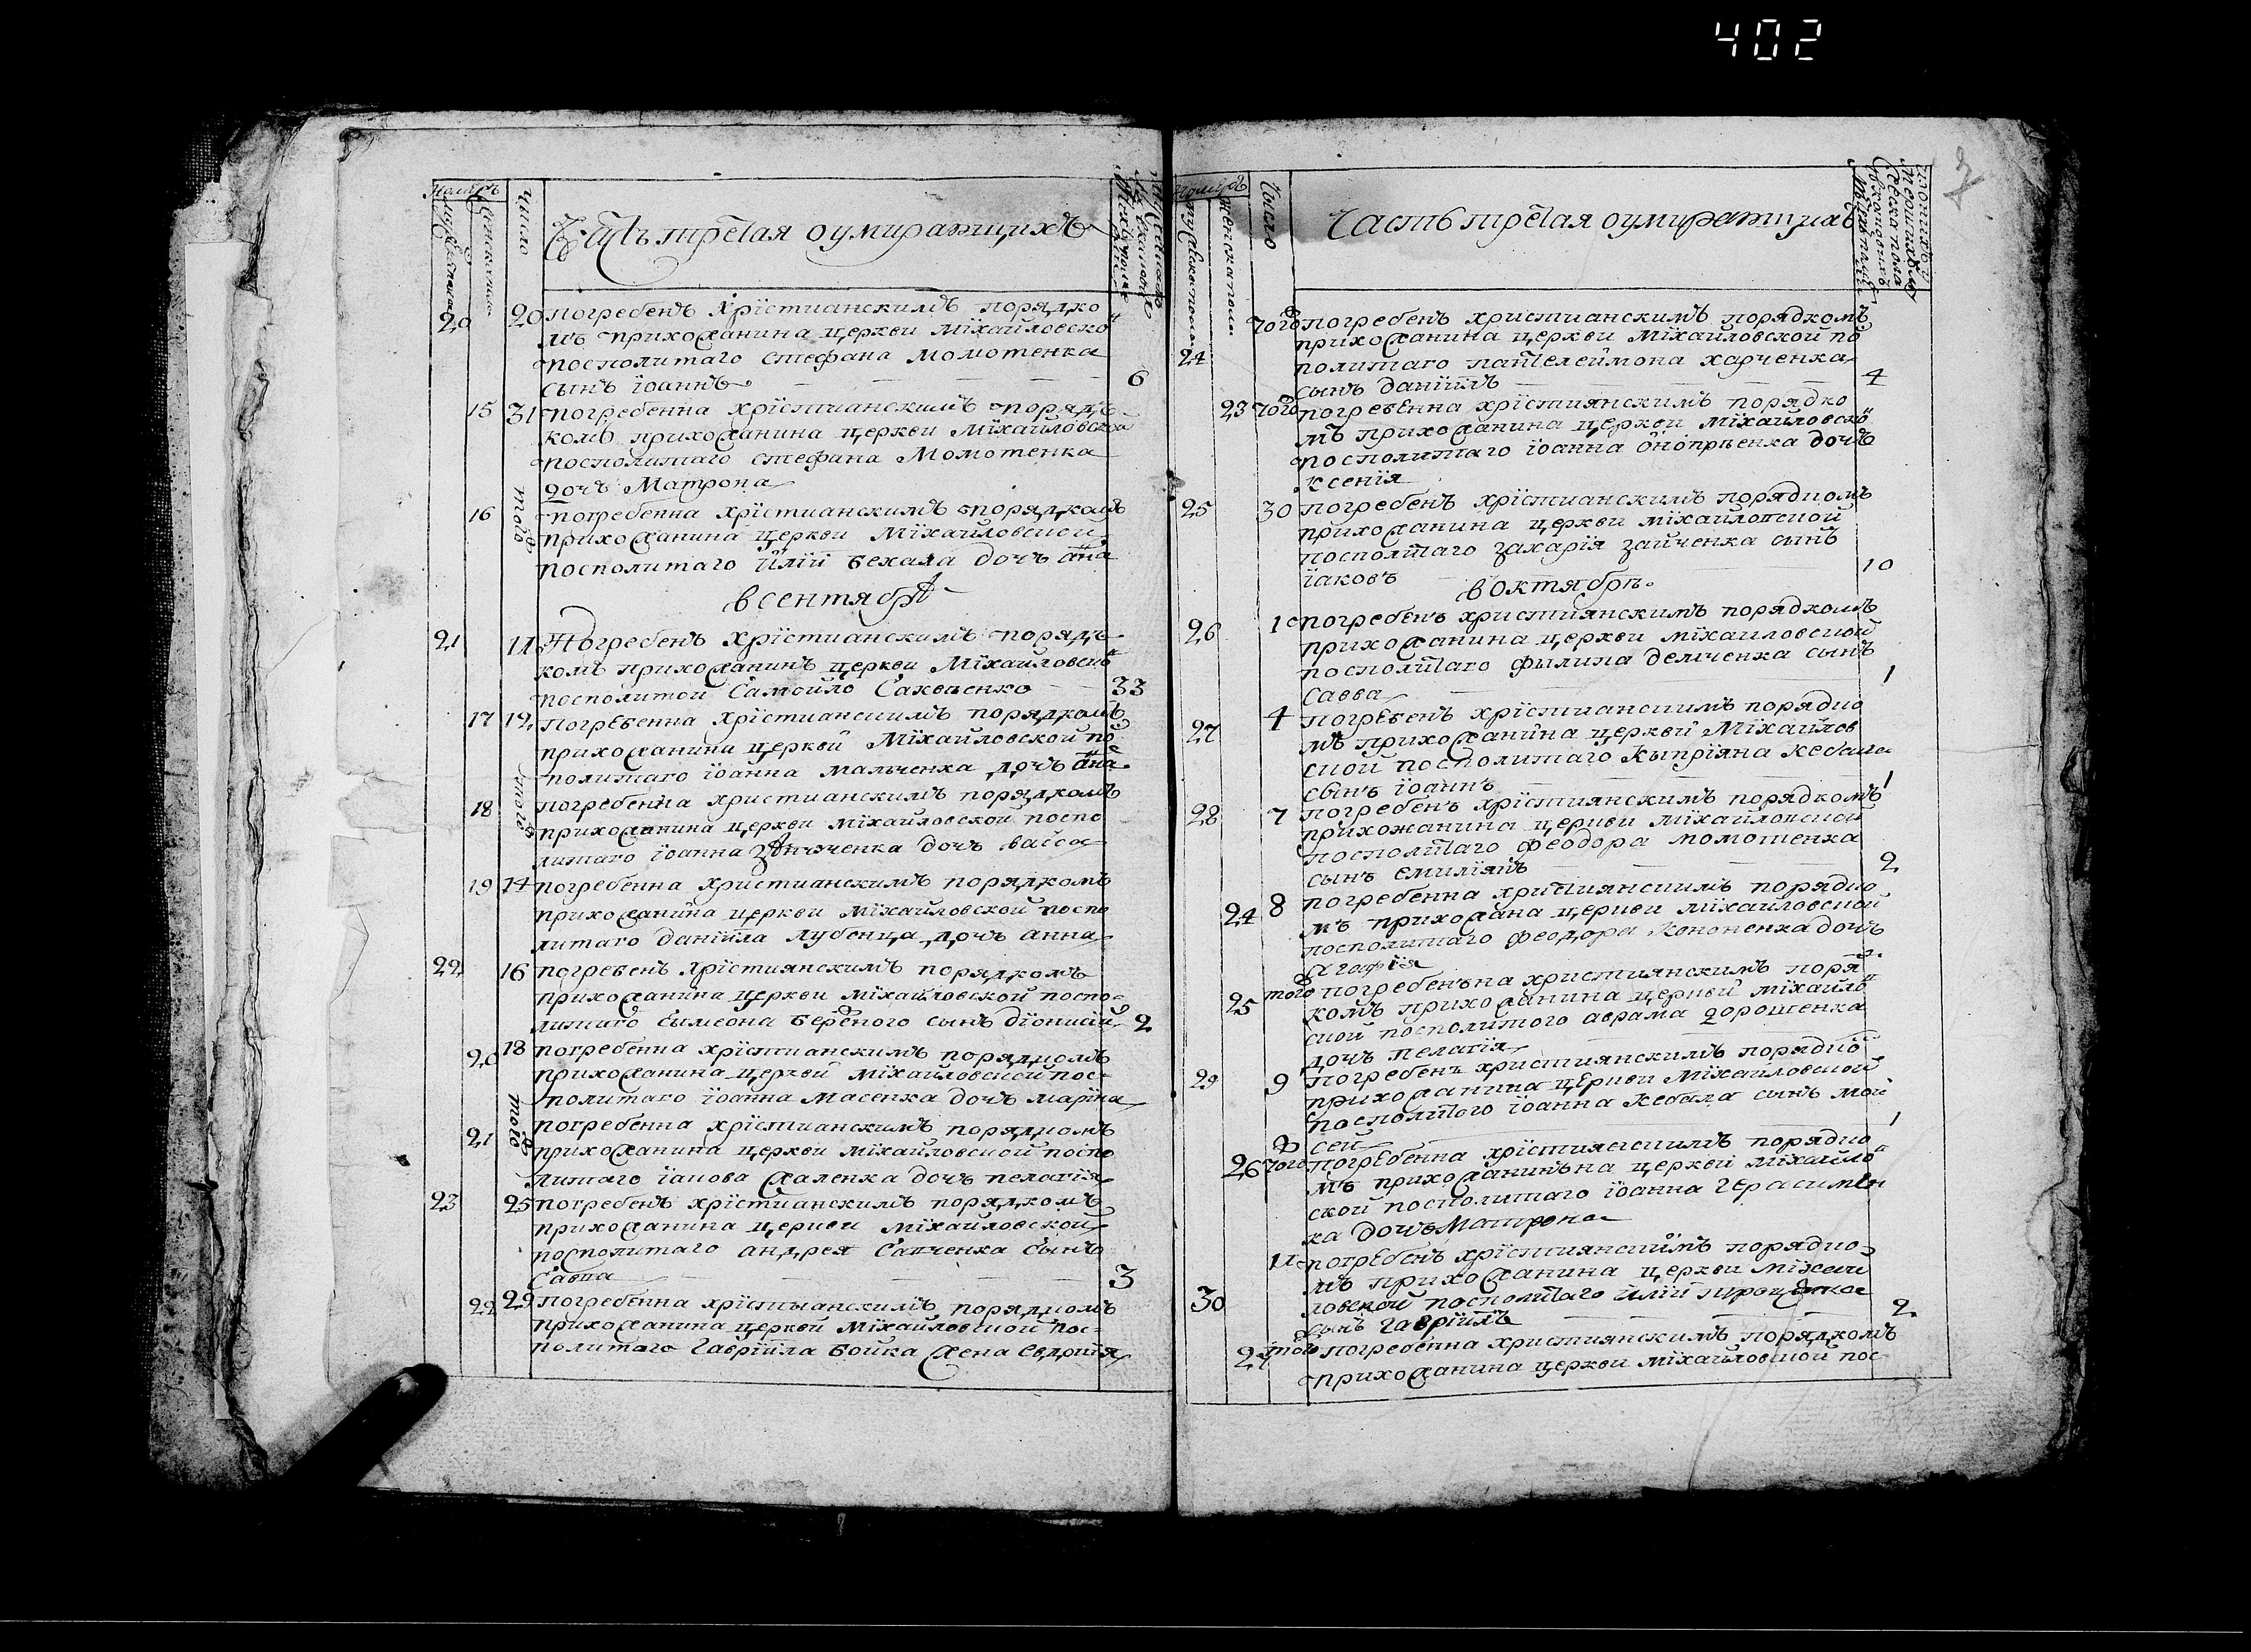 402
Номеръ
число
Часть третая оумирающихъ
20 20 погребенъ Хрїстианскимъ порядко
мъ прихожанина церкви Мїхайловской
посполитаго стефана Момотенка
сынъ їоаннъ 6
15 31 погребенна хрїстианскимъ поряд
комъ прихожанина церкви Мїхайловской
посполитаго стефана Момотенка
дочь Матрона
16 того погребенна хрїстианскимъ порядкомъ
прихожанина церкви Мїхайловской
посполитаго Илїи Бехала дочъ анна
в сентябрѣ
21 11 Погребенъ Хрїстианскимъ поряд
комъ прихожанинъ церкви Мїхайловской
посполитой Самойло 33
17 12 Погребенна хрїстианскимъ порядкомъ
прихожанина церквй Мїхайловской пос
политаго їоанна мальченка дочъ анна
18 того погребенна христианскимъ порядкомъ
прихожанина церкви Мїхайловской поспо
литаго їоанна дочъ васса
19 14 погребенна христианскимъ порядкомъ
прихожанина церкви Мїхайловской поспо
литаго данїила лубенца дочъ анна
22 16 погребенъ хрїстиянскимъ порядкомъ
прихожанина церкви мїхайловской поспо
литаго симеона Бердного сынъ дїонисїй 2
20 18 погребенна хрїстианскимъ порядкомъ
прихожанина церквй мїхайловской пос
политаго їоанна Масенка дочъ марїна
21 того погребенна хрїстианскимъ порядкомъ
прихожанина церкви мїхайловской поспо
литаго їакова жаленка дочъ пелагїя
23 25 погребенъ хрїстианскимъ порядкомъ
прихожанина церкви мїхайловской
посполитаго андрея Сапченка сынъ
Савва 3
22 29 погребенна хрїстианскимъ порядкомъ
прихожанина церквй мїхайловской пос
политаго Гаврїила Бойка жена
Номеръ
женска пола
Число
Часть третая оумирающихъ
24 того погребенъ христианскимъ порядкомъ
прихожанина церкви Мїхайловской пос
политаго пантелеймона харченка
сынъ данїилъ 4
23 того погребенна хрїстиянскимъ порядко
мъ прихожанина церкви мїхайловской
посполитаго їоанна онопрѣенка дочъ
ксенїя
25 30 погребенъ хрїстианскимъ порядкомъ
прихожанина церкви мїхайловской
посполитаго захарїя зайченка сынъ
їаковъ 10
в октябрѣ
26 1 погребенъ християнскимъ порядкомъ
прихожанина церкви мїхайловской
посполитаго филипа демченка сынъ
савва 1
27 4 погребенъ хрїстианскимъ порядко
мъ прихожанина церквй Мїхайлов
ской посполитаго Кыпрїяна Кебала
сынъ їоаннъ 1
28 7 погребенъ хрїстиянскимъ порядкомъ
прихожанина церкви мїхайловской
посполитаго феодора момотенка
сынъ емилїянъ 2
24 8 погребенна християнскимъ порядко
мъ прихожана церкви мїхайловской
посполитаго феодора Кононенка дочъ
агафїя
25 того погребенъна християнскимъ поряд
комъ прихожанина церквй мїхайлов
ской посполитого аврама дорошенка
дочъ пелагїя
29 9 погребенъ християнскимъ порядко
прихожанина церкви Мїхайловской
посполитого їоанна Кебала сынъ мой
сей 1
26 того погребенна хрїстиянскимъ порядко
мъ прихожанинъна церквй мїхайлов
ской посполитаго їоанна герасимен
ка дочъ Матрона
30 11 погребенъ хрїстиянскимъ порядко
мъ прихожанина церкви мїхай
ловской посполитаго илїй
сынъ гаврїилъ 2
27 того погребенна християнскимъ порядкомъ
прихожанина церкви мїхайловской пос